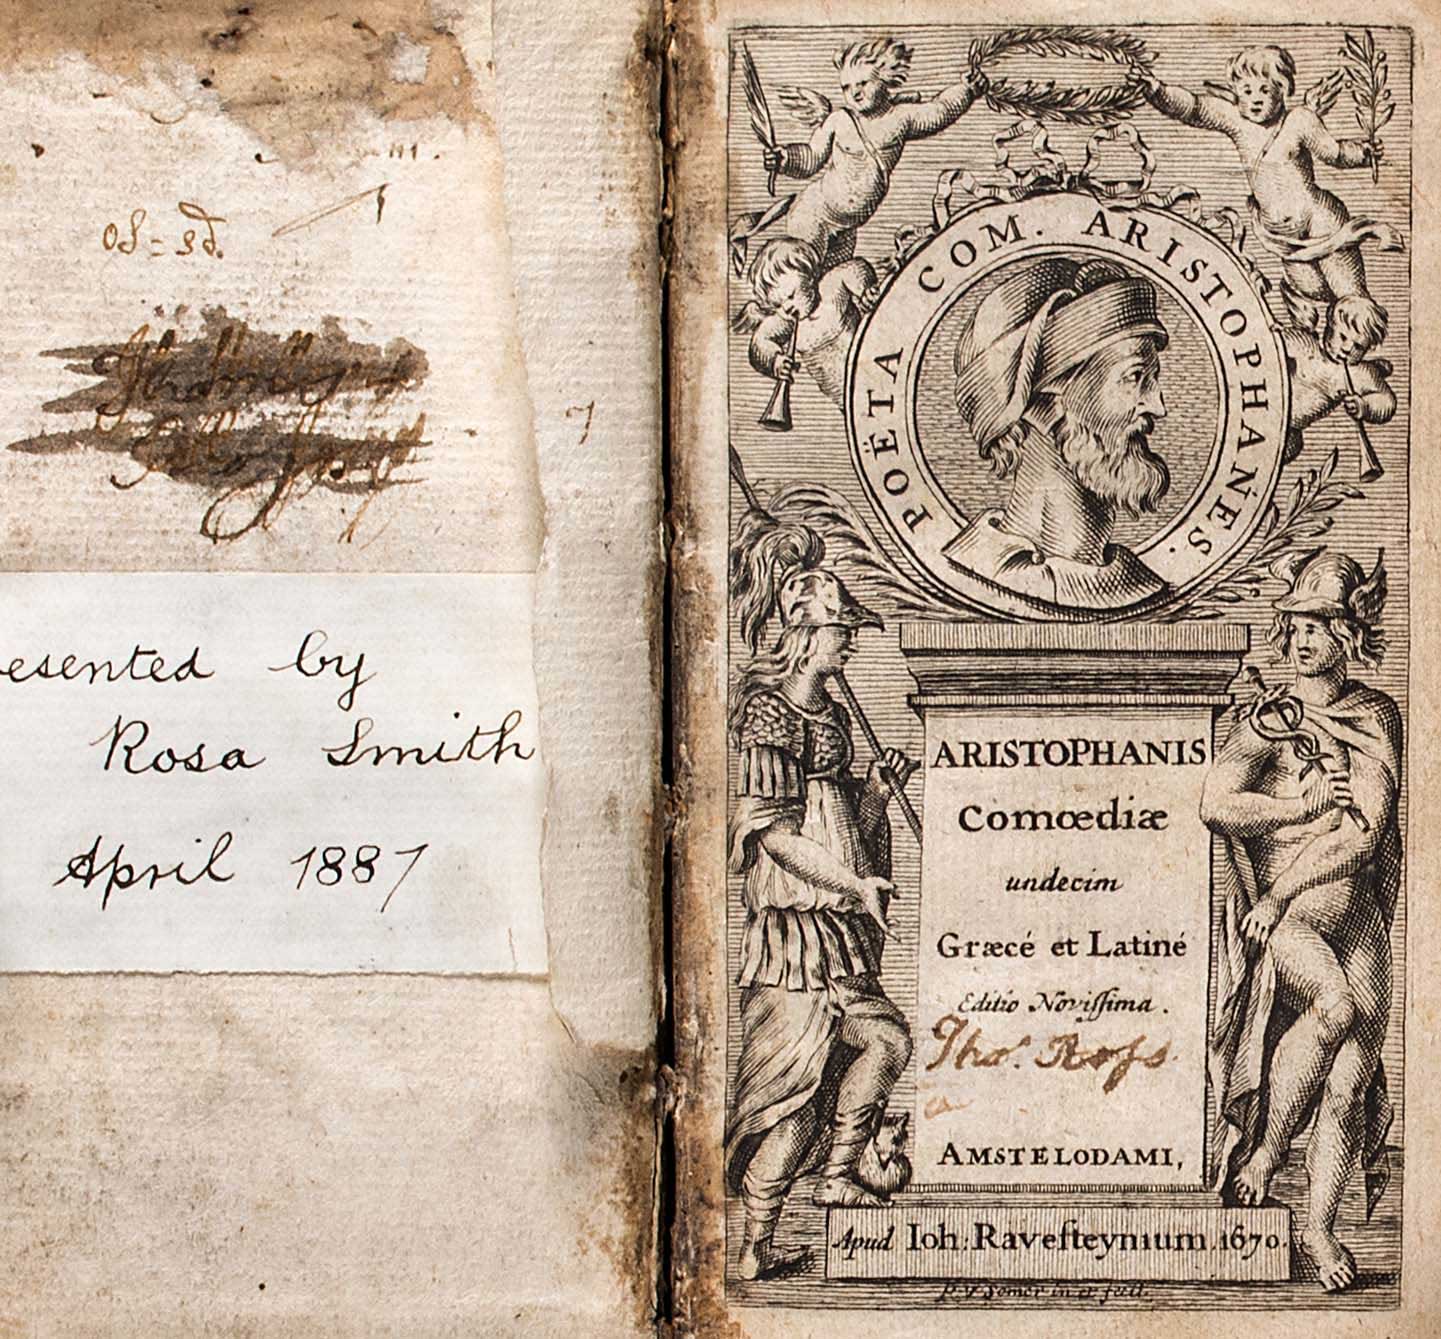 os = sd.
7
esented by
Rosa Smith
April 1887
POËTA COM. ARISTOPHANES.
ARISTOPHANIS
Comœdiæ
undecim
Græcé et Latiné
Editio Noviſſima.
Tho.s Roſs
AMSTELODAMI,
Apud Ioh: Raveſteynium. 1670.